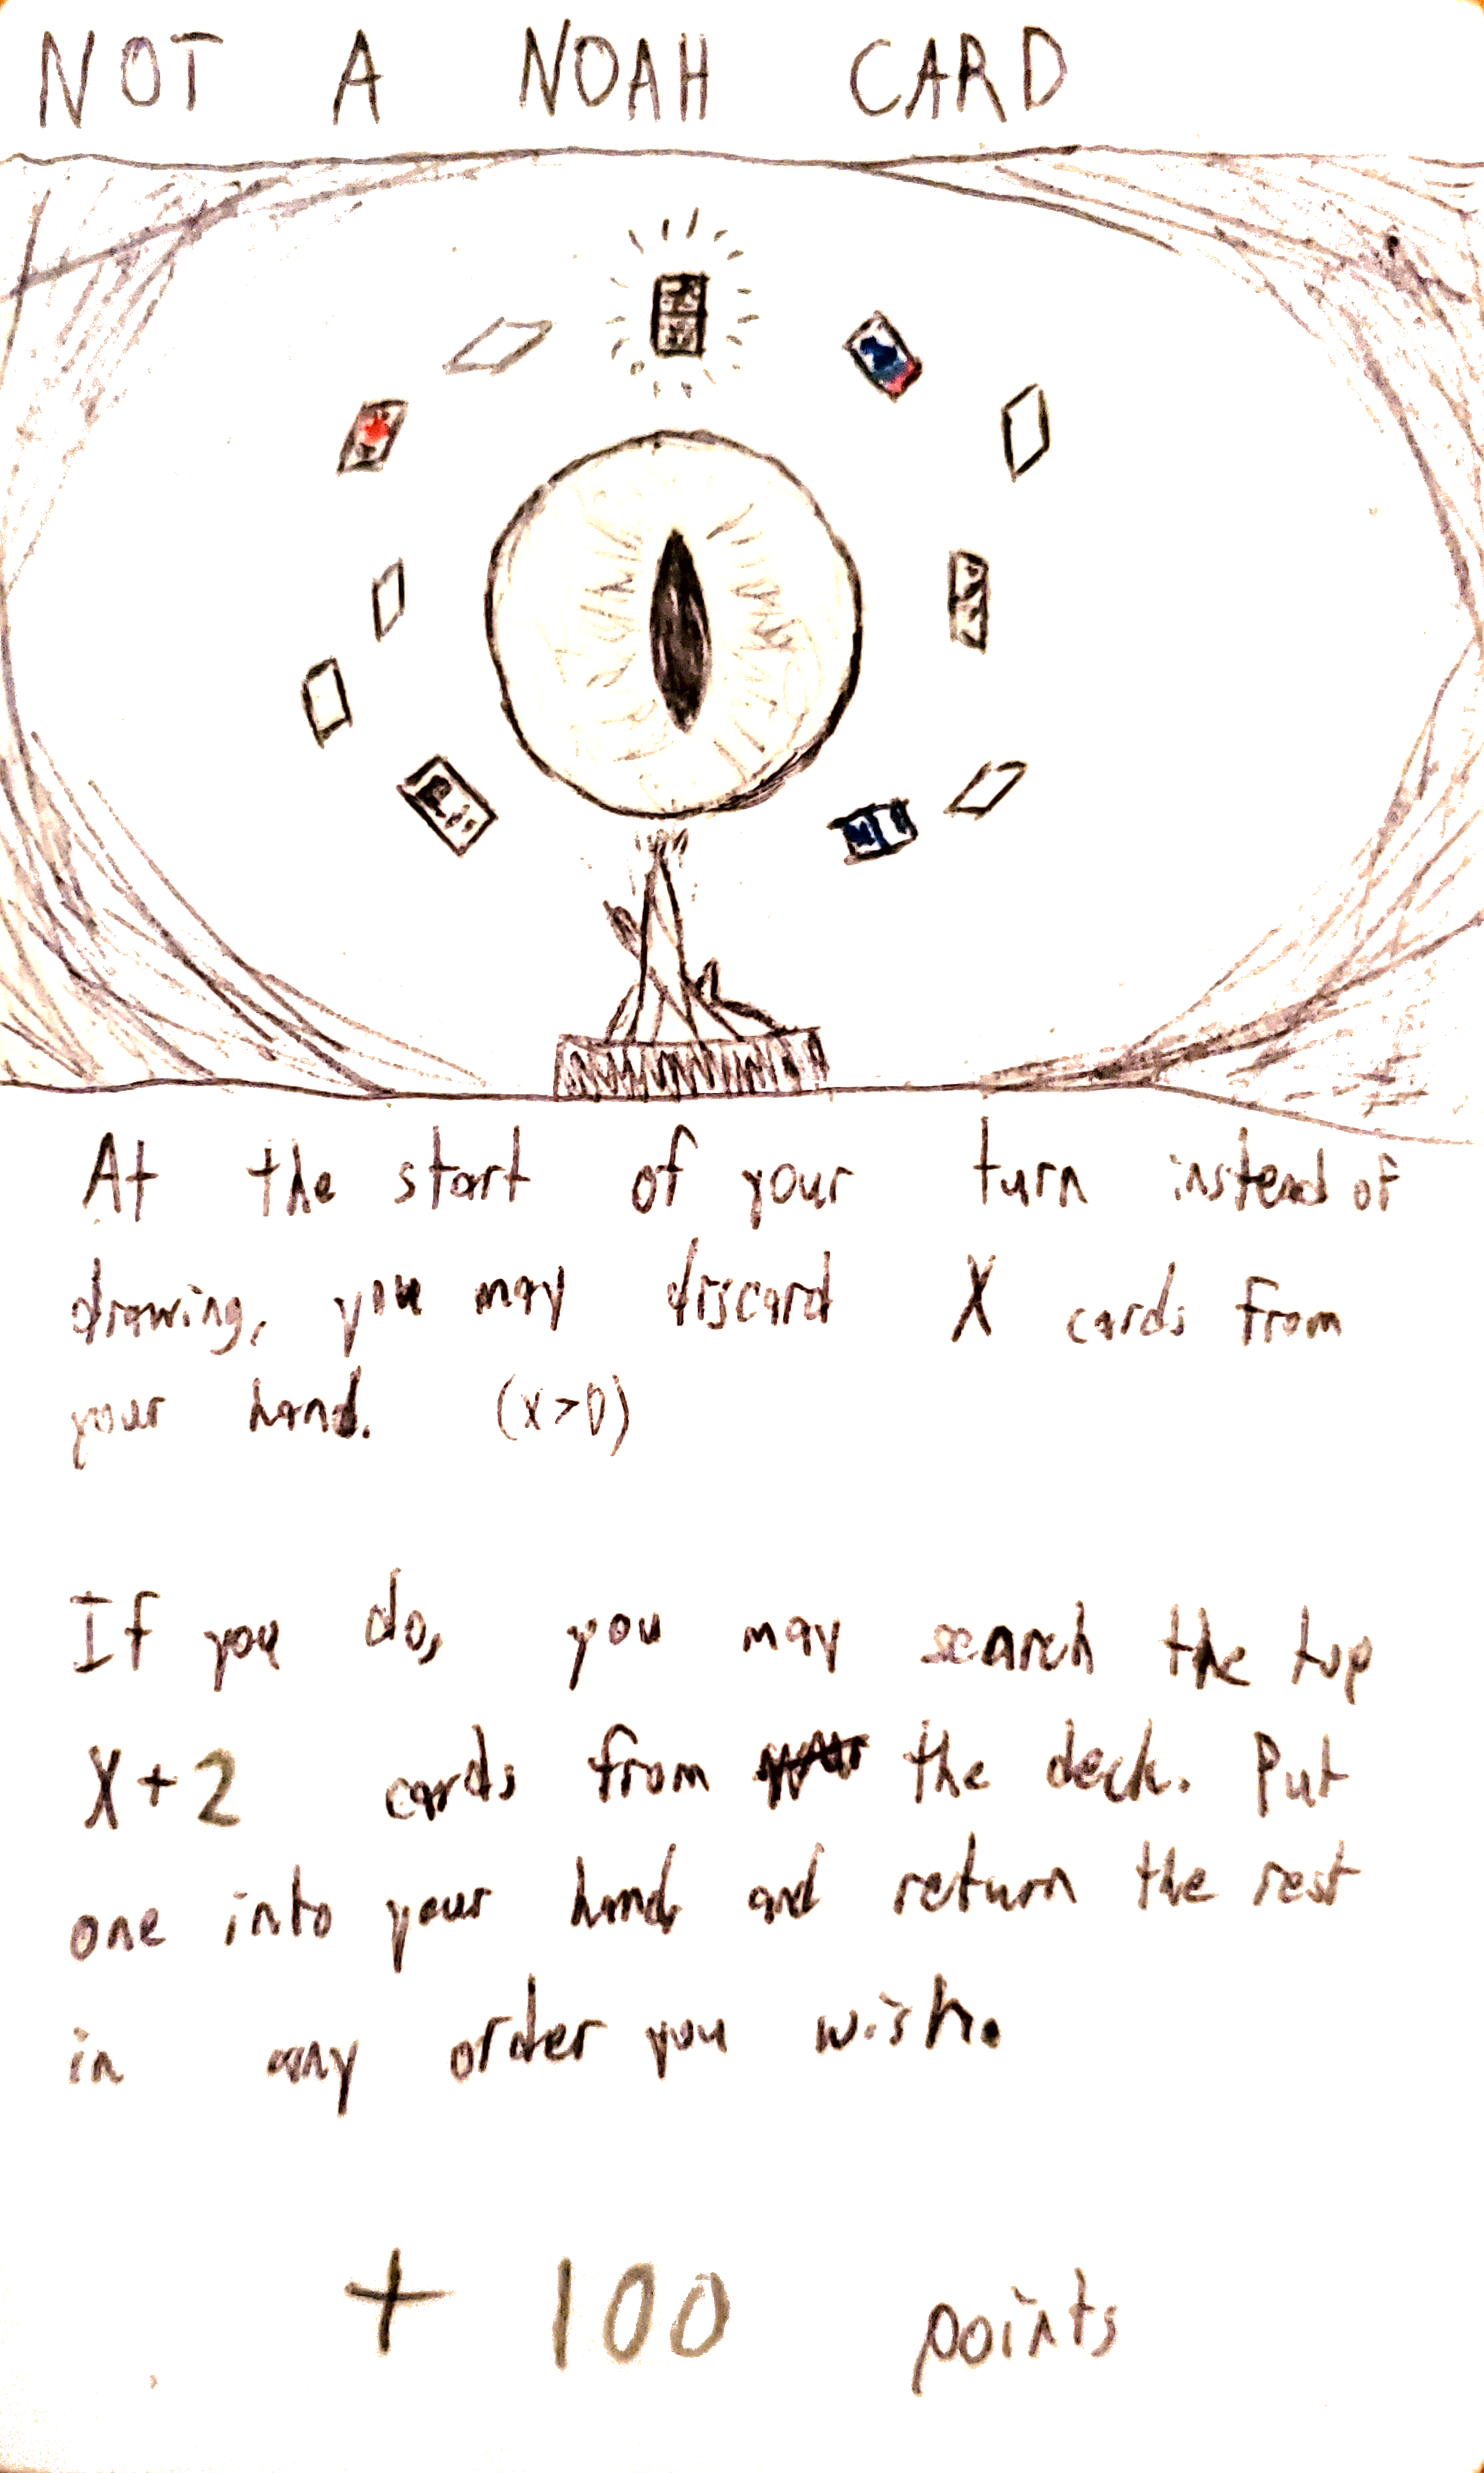 NOT A NOAH CARD
At the start of your turn instead of
drawing, you may discard X cards from
your hand. (x>0)
If you do, you may search the top
X+2 cards from the deck. Put
one into your hand and return the rest
in any order you wish.
+ 100 points